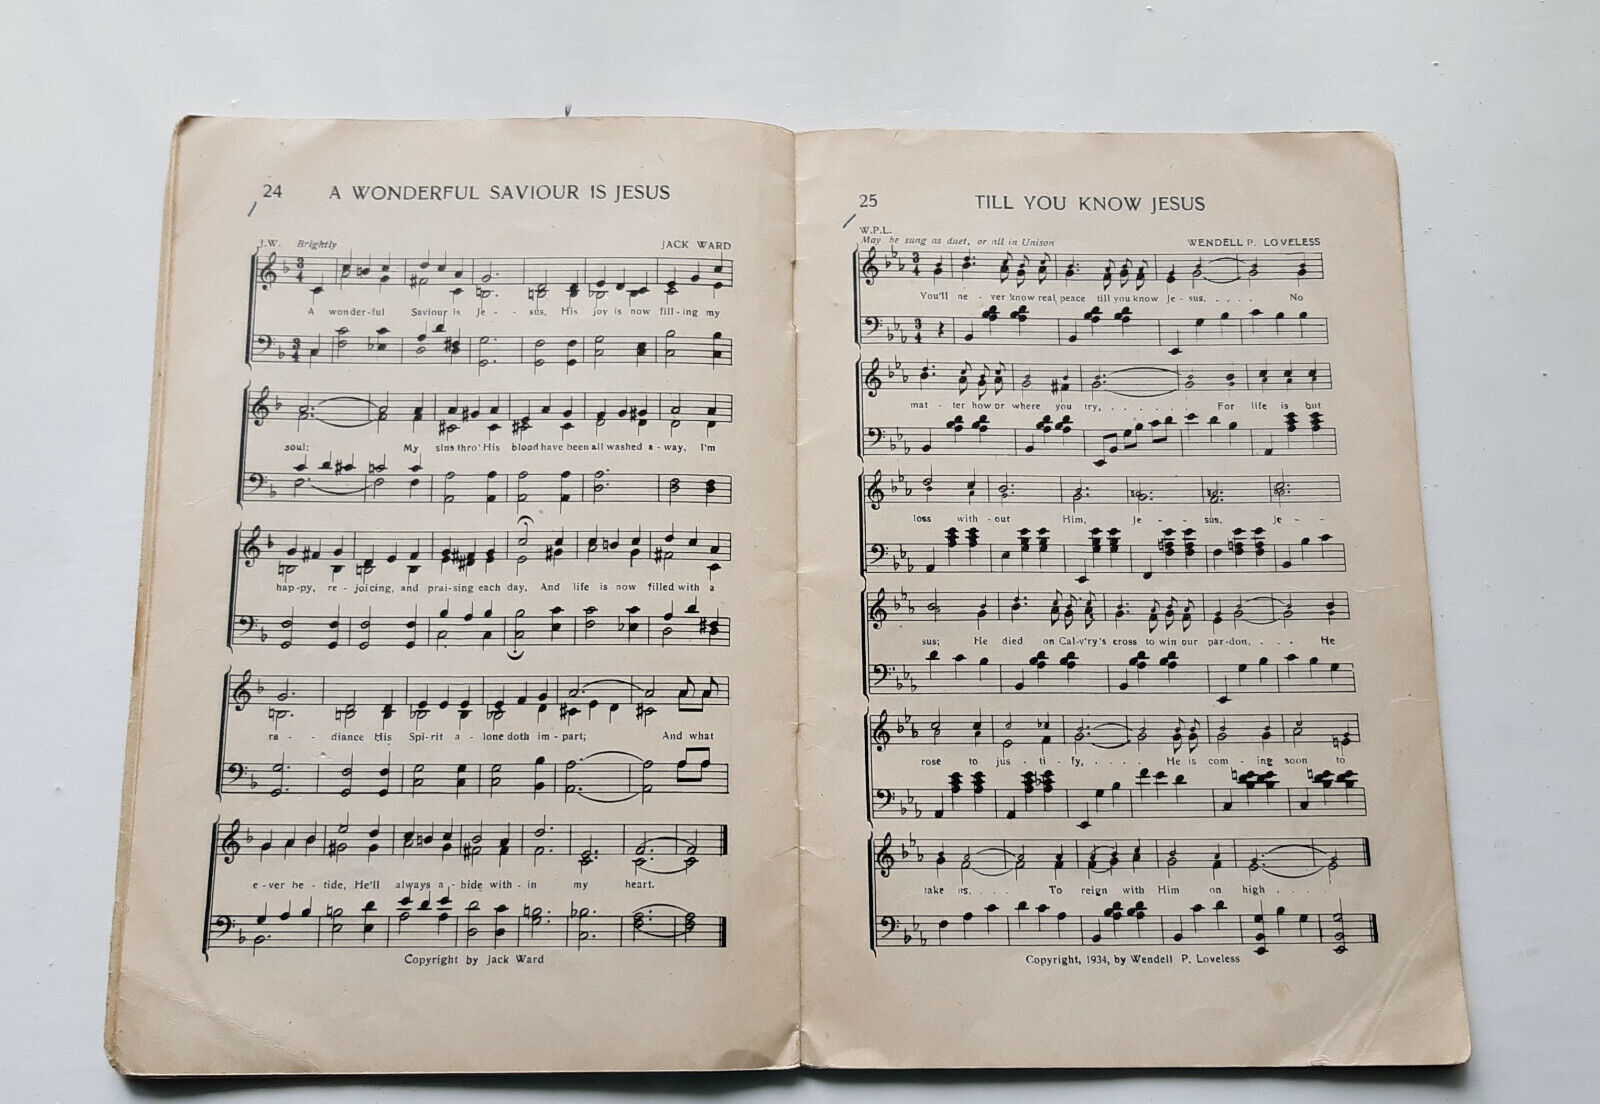 24 A WONDERFUL SAVIOUR IS JESUS
J.W. Brightly JACK WARD
A wonder-ful Saviour is Je - sus, His joy is now fill-ing my
soul: My sins thro' His blood have been all washed a-way, I'm
hap-py, re-joicing, and prai-sing each day, And life is now filled with a
ra - diance His Spi-rit a-lone doth im-part; And what
e-ver be-tide, He'll always a-bide with-in my heart.
Copyright by Jack Ward
25 TILL YOU KNOW JESUS
W.P.L.
May be sung as duet, or all in Unison WENDELL P. LOVELESS
You'll ne-ver know real peace till you know Je-sus. . . . . No
mat-ter how or where you try, . . . . . . For life is but
loss with-out Him, Je - sus, Je -
sus; He died on Cal-v'ry's cross to win our par-don, . . . He
rose to jus-ti-fy, . . . . He is com-ing soon to
take us. . . . To reign with Him on high . . . . .
Copyright, 1934, by Wendell P. Loveless